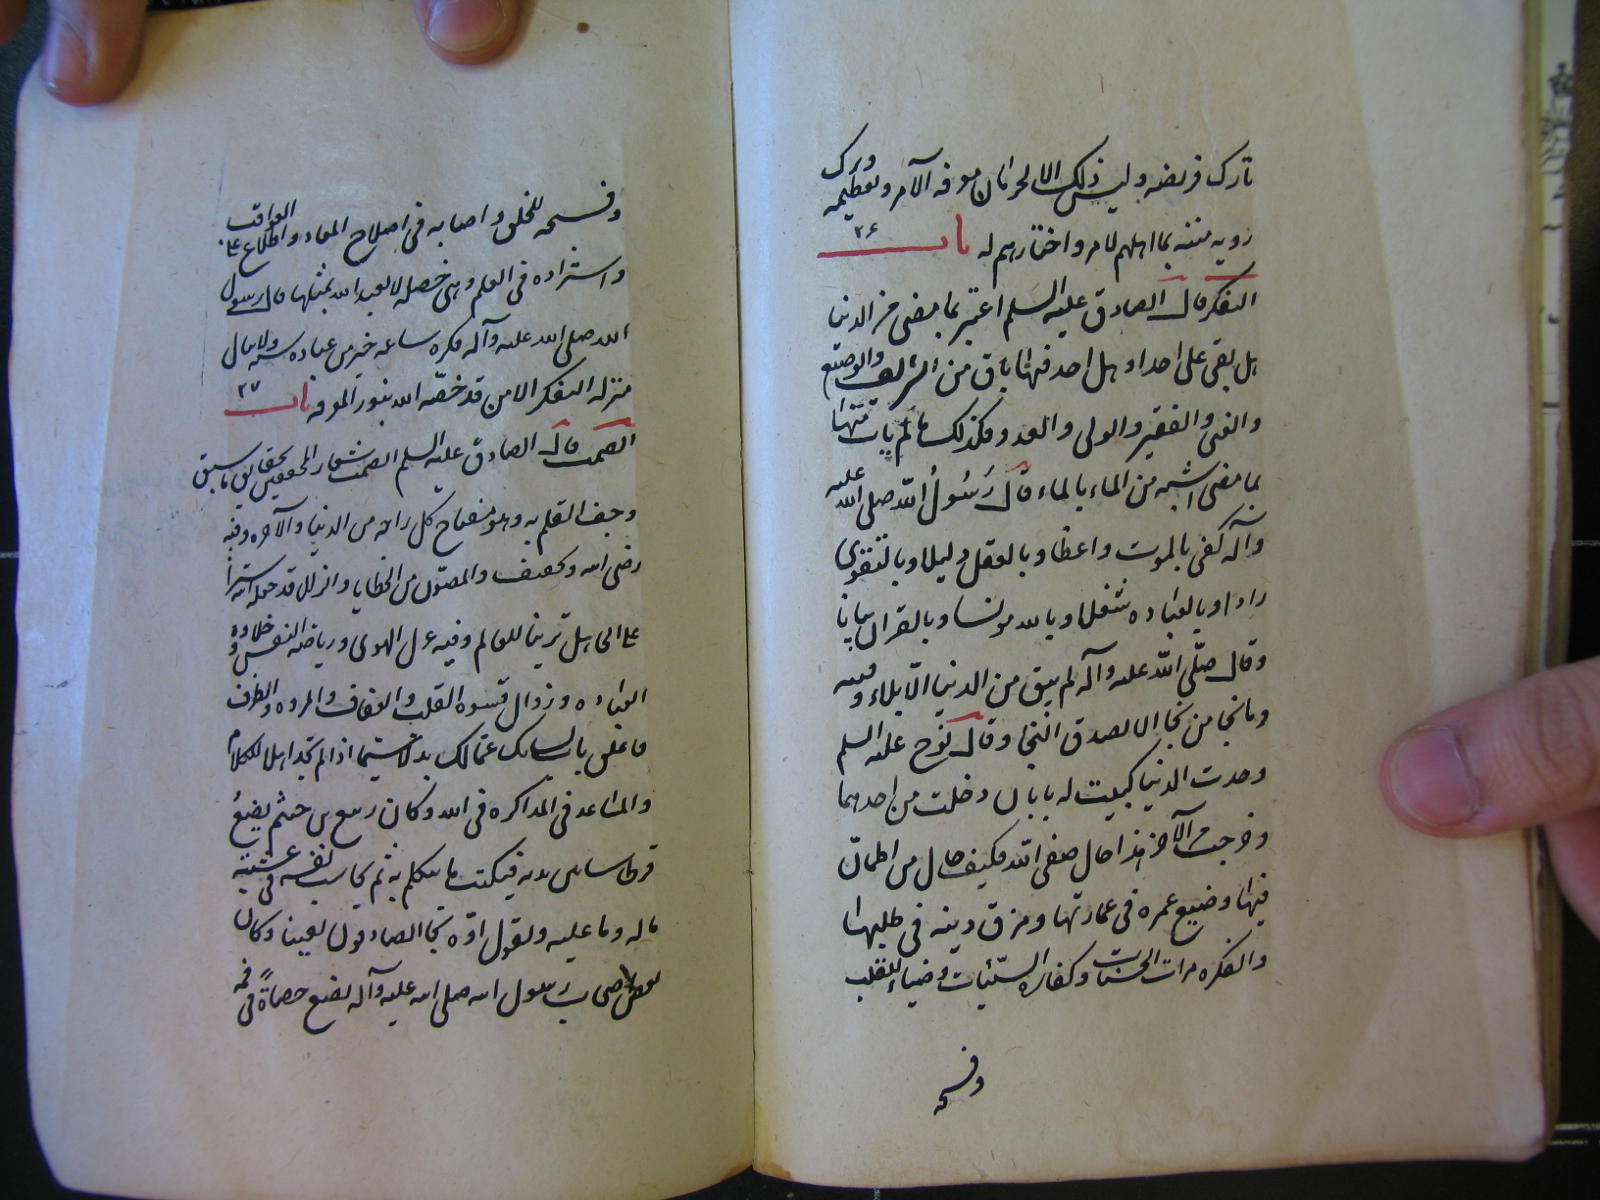 تارك فريضه وليس ذلك الا لحرمان معرفه الآمر وتعظيمه وترك
رويه منته بما اهلهم لامر واختارهم له باب ٢۶
التفكر قال الصادق عليه السلم اعتبر بما مضى من الدنيا
هل بقى على احد او هل احد فيها باق من الشريف والوضيع
والغنى والفقير والولى والعدو فكذلك ما لم يات منها
بما مضى اشبه من الماء بالماء قال رَسُولُ الله صلى الله عليه
وآله كفى بالموت واعظا وبالعقل دليلا وبالتقوى
زادا وبالعباده شغلا وبالله مونسا وبالقران بيانا
وقال صلّى الله عليه وآله لم يبق من الدنيا الّا بلاء وفتنه
وما نجا من نجا الا بصدق التجا وقال نوح عليه السلم
وجدت الدنيا كبيت له بابان دخلت من احدهما
وخرجت من الآخر هذا حال صفى الله فكيف حال من اطمان
فيها وضيع عمره فى عمارتها ومزق دينه فى طلبها
والفكره مرات الحسنات وكفاره السّيّئات وضياء للقلب
وفسحه
وفسحه للخلق واصابه فى اصلاح المعاد واطلاع على العواقب
واستزاده فى العلم وهى خصله لا يعبد الله بمثلها قال رسول
الله صلى الله عليه وآله فكره ساعه خير من عباده سنه ولا ينال
منزله التفكر الا من قد خصّه الله بنور المعرفه باب ٢٧
الصمت قال الصادق عليه السلم الصمت شعار المحققين بحقايق ما سبق
وجف القلم به وهو مفتاح كل راحه من الدنيا والآخره وفيه
رضى الله وتخفيف والصون من الخطايا والزلل قد جعله الله سترا
على الجاهل تزينا للعالم وفيه عزل الهوى ورياضه النفس وحلاوه
العباده وزوال قسوه القلب والعفاف والمروه والظرف
فاغلق باب لسانك عمّا لك بد لا سيّما اذا لم تجد اهلا للكلام
والمساعد فى المذاكره فى الله وكان ربيع بن خثيم يضعُ
قرطاسا بين يديه فيكتب ما يتكلم به ثم يحاسب نفسه فى عشيته
ما له وما عليه ويقول اوّه نجا الصادقون يقينا وكان
بعض اصحاب رسول الله صلى الله عليه وآله يضع حصاةً فى فمه